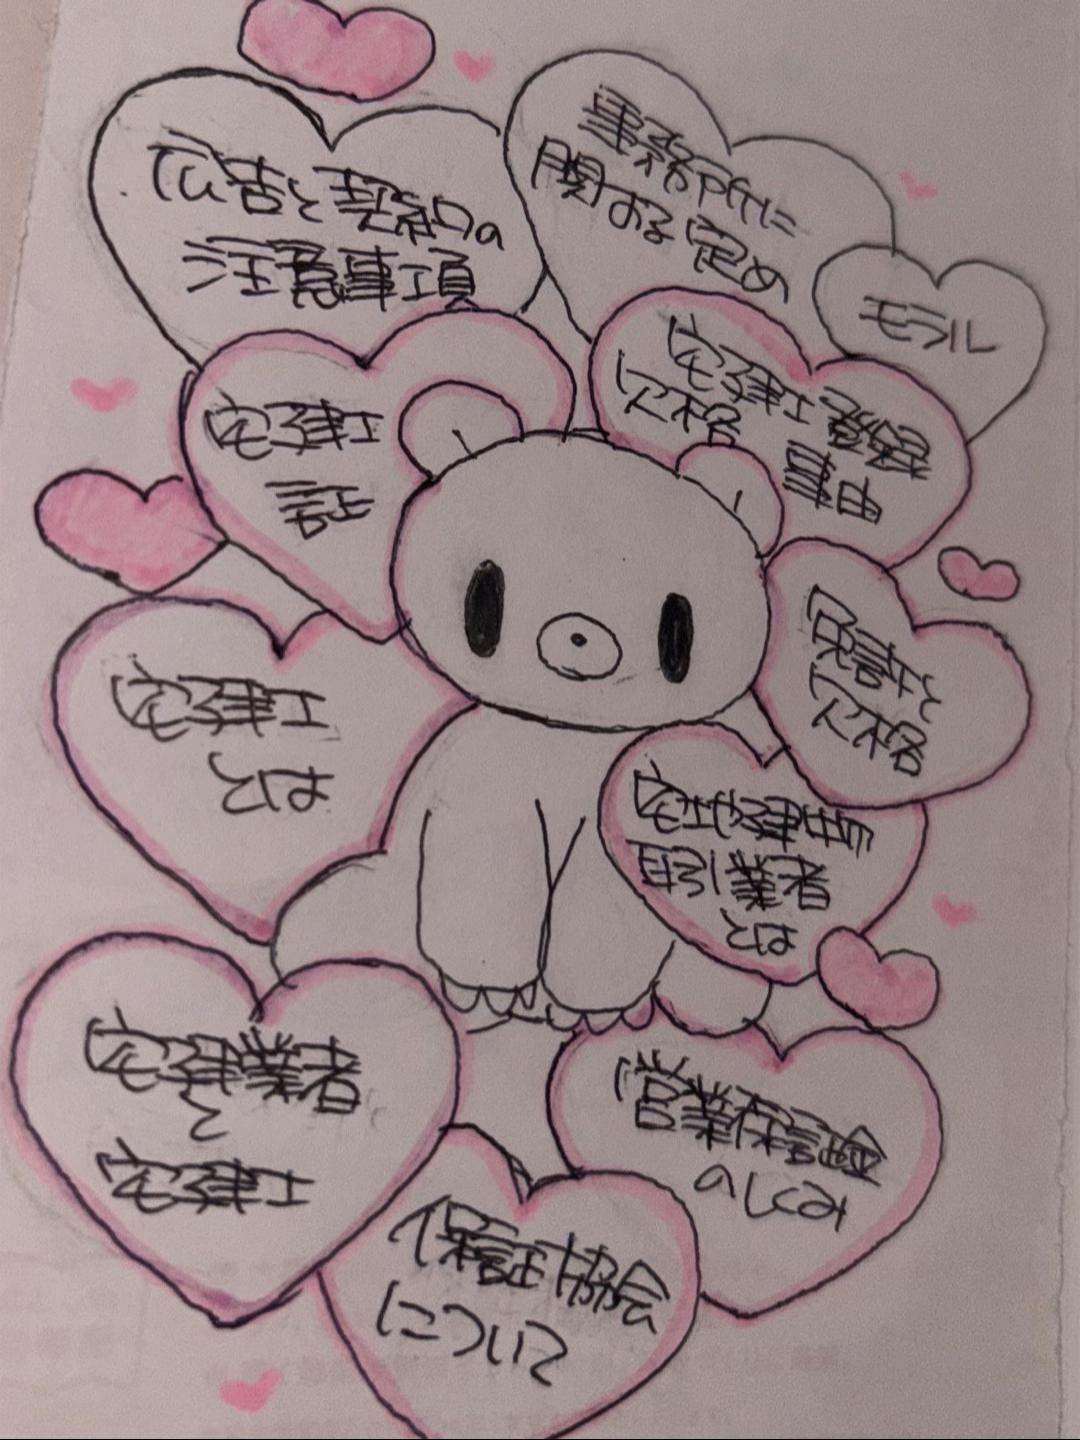 広告と契約の
注意事項
事務所に
関する定め
モラル
宅建士
証
宅建士登録
欠格 事由
宅建士
とは
免許と
欠格
宅地建物
取引業者
とは
宅建業者
と
宅建士
営業保証金
のしくみ
保証協会
について